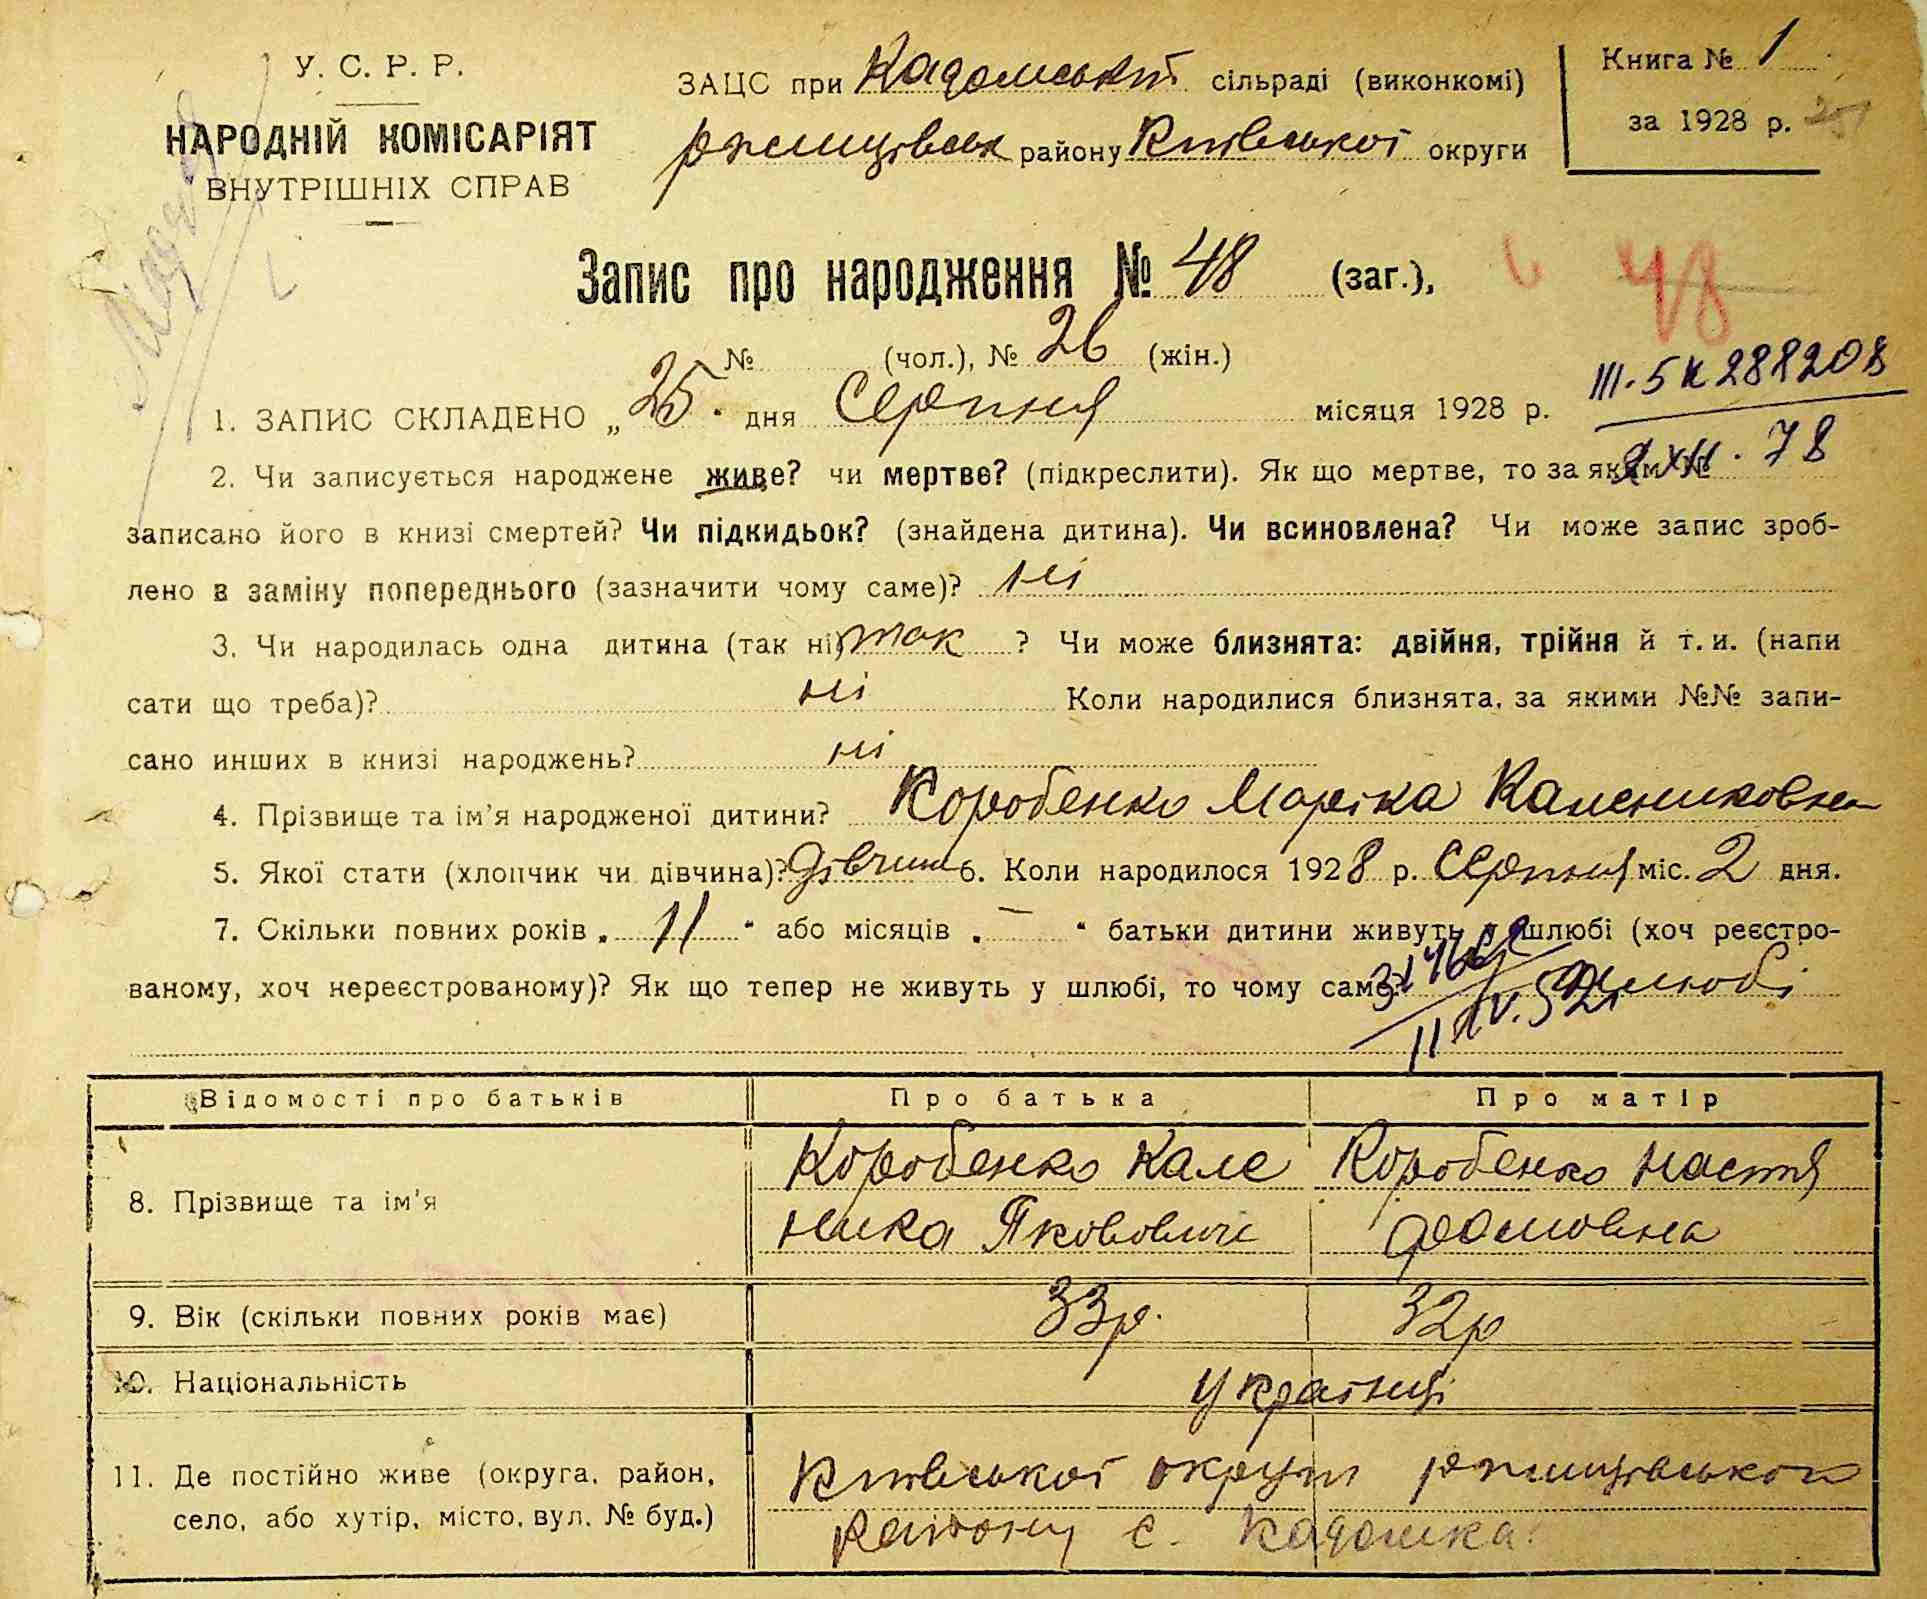 У. С. Р. Р.
НАРОДНІЙ КОМІСАРІЯТ
ВНУТРІШНІХ СПРАВ
ЗАЦС при Кадомській сільраді (виконкомі)
ржищівськ району Київської округи
Книга № 1
за 1928 р.
Запис про народження № 48 (заг.), 48
№ (чол.), № 26 (жін.)
1. ЗАПИС СКЛАДЕНО „25" дня Серпня місяця 1928 р.
III-БК 288208
XII. 78
2. Чи записується народжене живе? чи мертве? (підкреслити). Як що мертве, то за яким №
записано його в книзі смертей? Чи підкидьок? (знайдена дитина). Чи всиновлена? Чи може запис зроб-
лено в заміну попереднього (зазначити чому саме)? ні
3. Чи народилась одна дитина (так ні) так ? Чи може близнята: двійня, трійня й т. и. (напи
сати що треба)? ні Коли народилися близнята, за якими №№ запи-
сано инших в книзі народжень? ні
4. Прізвище та ім'я народженої дитини? Коробенко Маріка Калениковна
5. Якої стати (хлопчик чи дівчина)? дівчина 6. Коли народилося 1928 р. Серпня міс. 2 дня.
7. Скільки повних років „ 11 " або місяців „ — " батьки дитини живуть у шлюбі (хоч реєстро-
ваному, хоч нереєстрованому)? Як що тепер не живуть у шлюбі, то чому саме? шлюбі
Відомості про батьків Про батька Про матір
8. Прізвище та ім'я Коробенко Кале Коробенко Настя
ника Якович
9. Вік (скільки повних років має) 33р. 32р
10. Національність українці
11. Де постійно живе (округа, район, Київської округи ржищівського
село, або хутір, місто, вул. № буд.) району с. Кадомка.